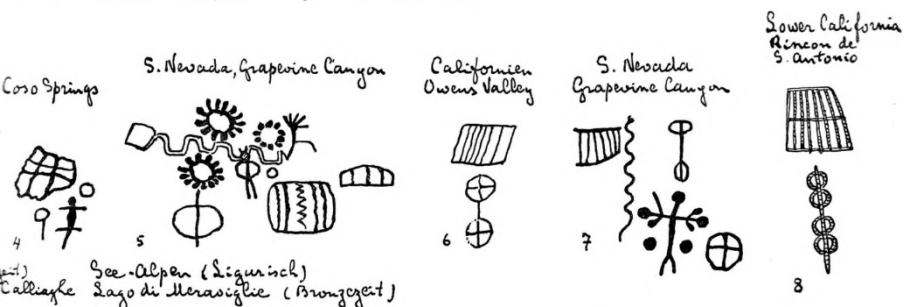 Coso Springs
4
S. Nevada, Grapevine Canyon
5
Californien
Owens Valley
6
S. Nevada
Grapevine Canyon
7
Lower California
Rincon de
S. Antonio
8
See-Alpen (Ligurisch)
Lago di Meraviglie (Bronzezeit)